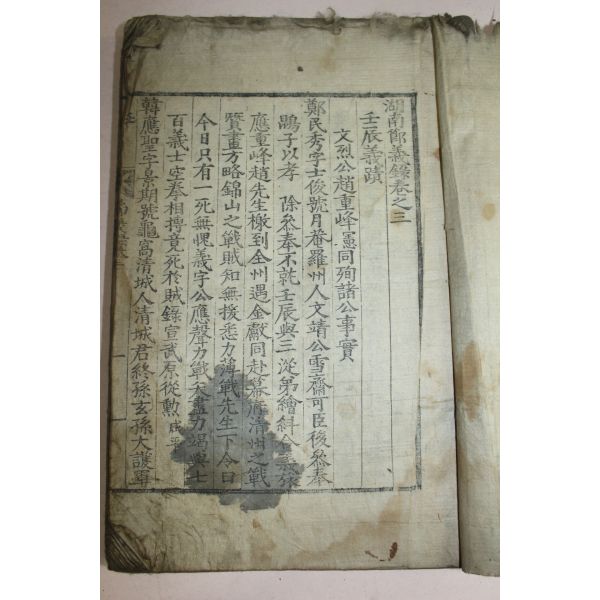 湖南節義錄卷之三
壬辰義蹟
文烈公趙重峰憲同殉諸公事實
鄭民秀字士俊號月菴羅州人文靖公雪齋可臣後叅奉
鵾子以孝 除叅奉不就壬辰與三從弟繪緝合義旅
應重峰趙先生檄到全州遇金獻同赴幕府淸州之戰
贊畫方略錦山之戰賊知無援悉力薄戰先生下令曰
今日只有一死無愧義字公應聲力戰矢盡力竭與七
百義士空拳相搏竟死於賊錄宣武原從勳 咸平
韓應聖字景期號龜窩淸城人淸城君終孫玄孫大護軍